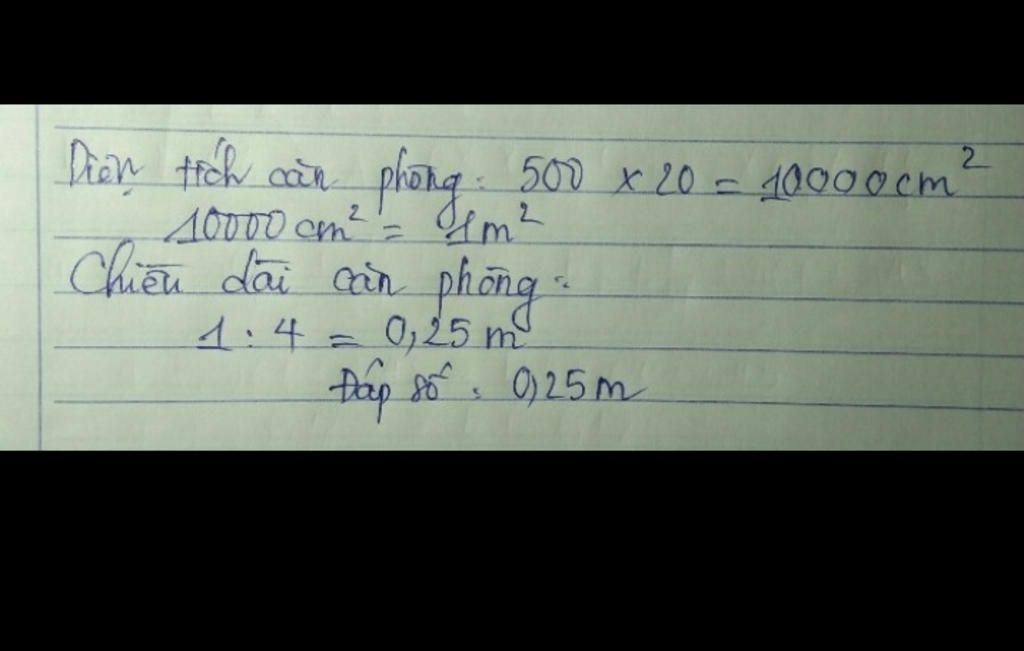 Diện tích căn phòng: 500 x 20 = 10000cm²
10000cm² = 1m²
Chiều dài căn phòng:
1 : 4 = 0,25 m
Đáp số: 0,25m